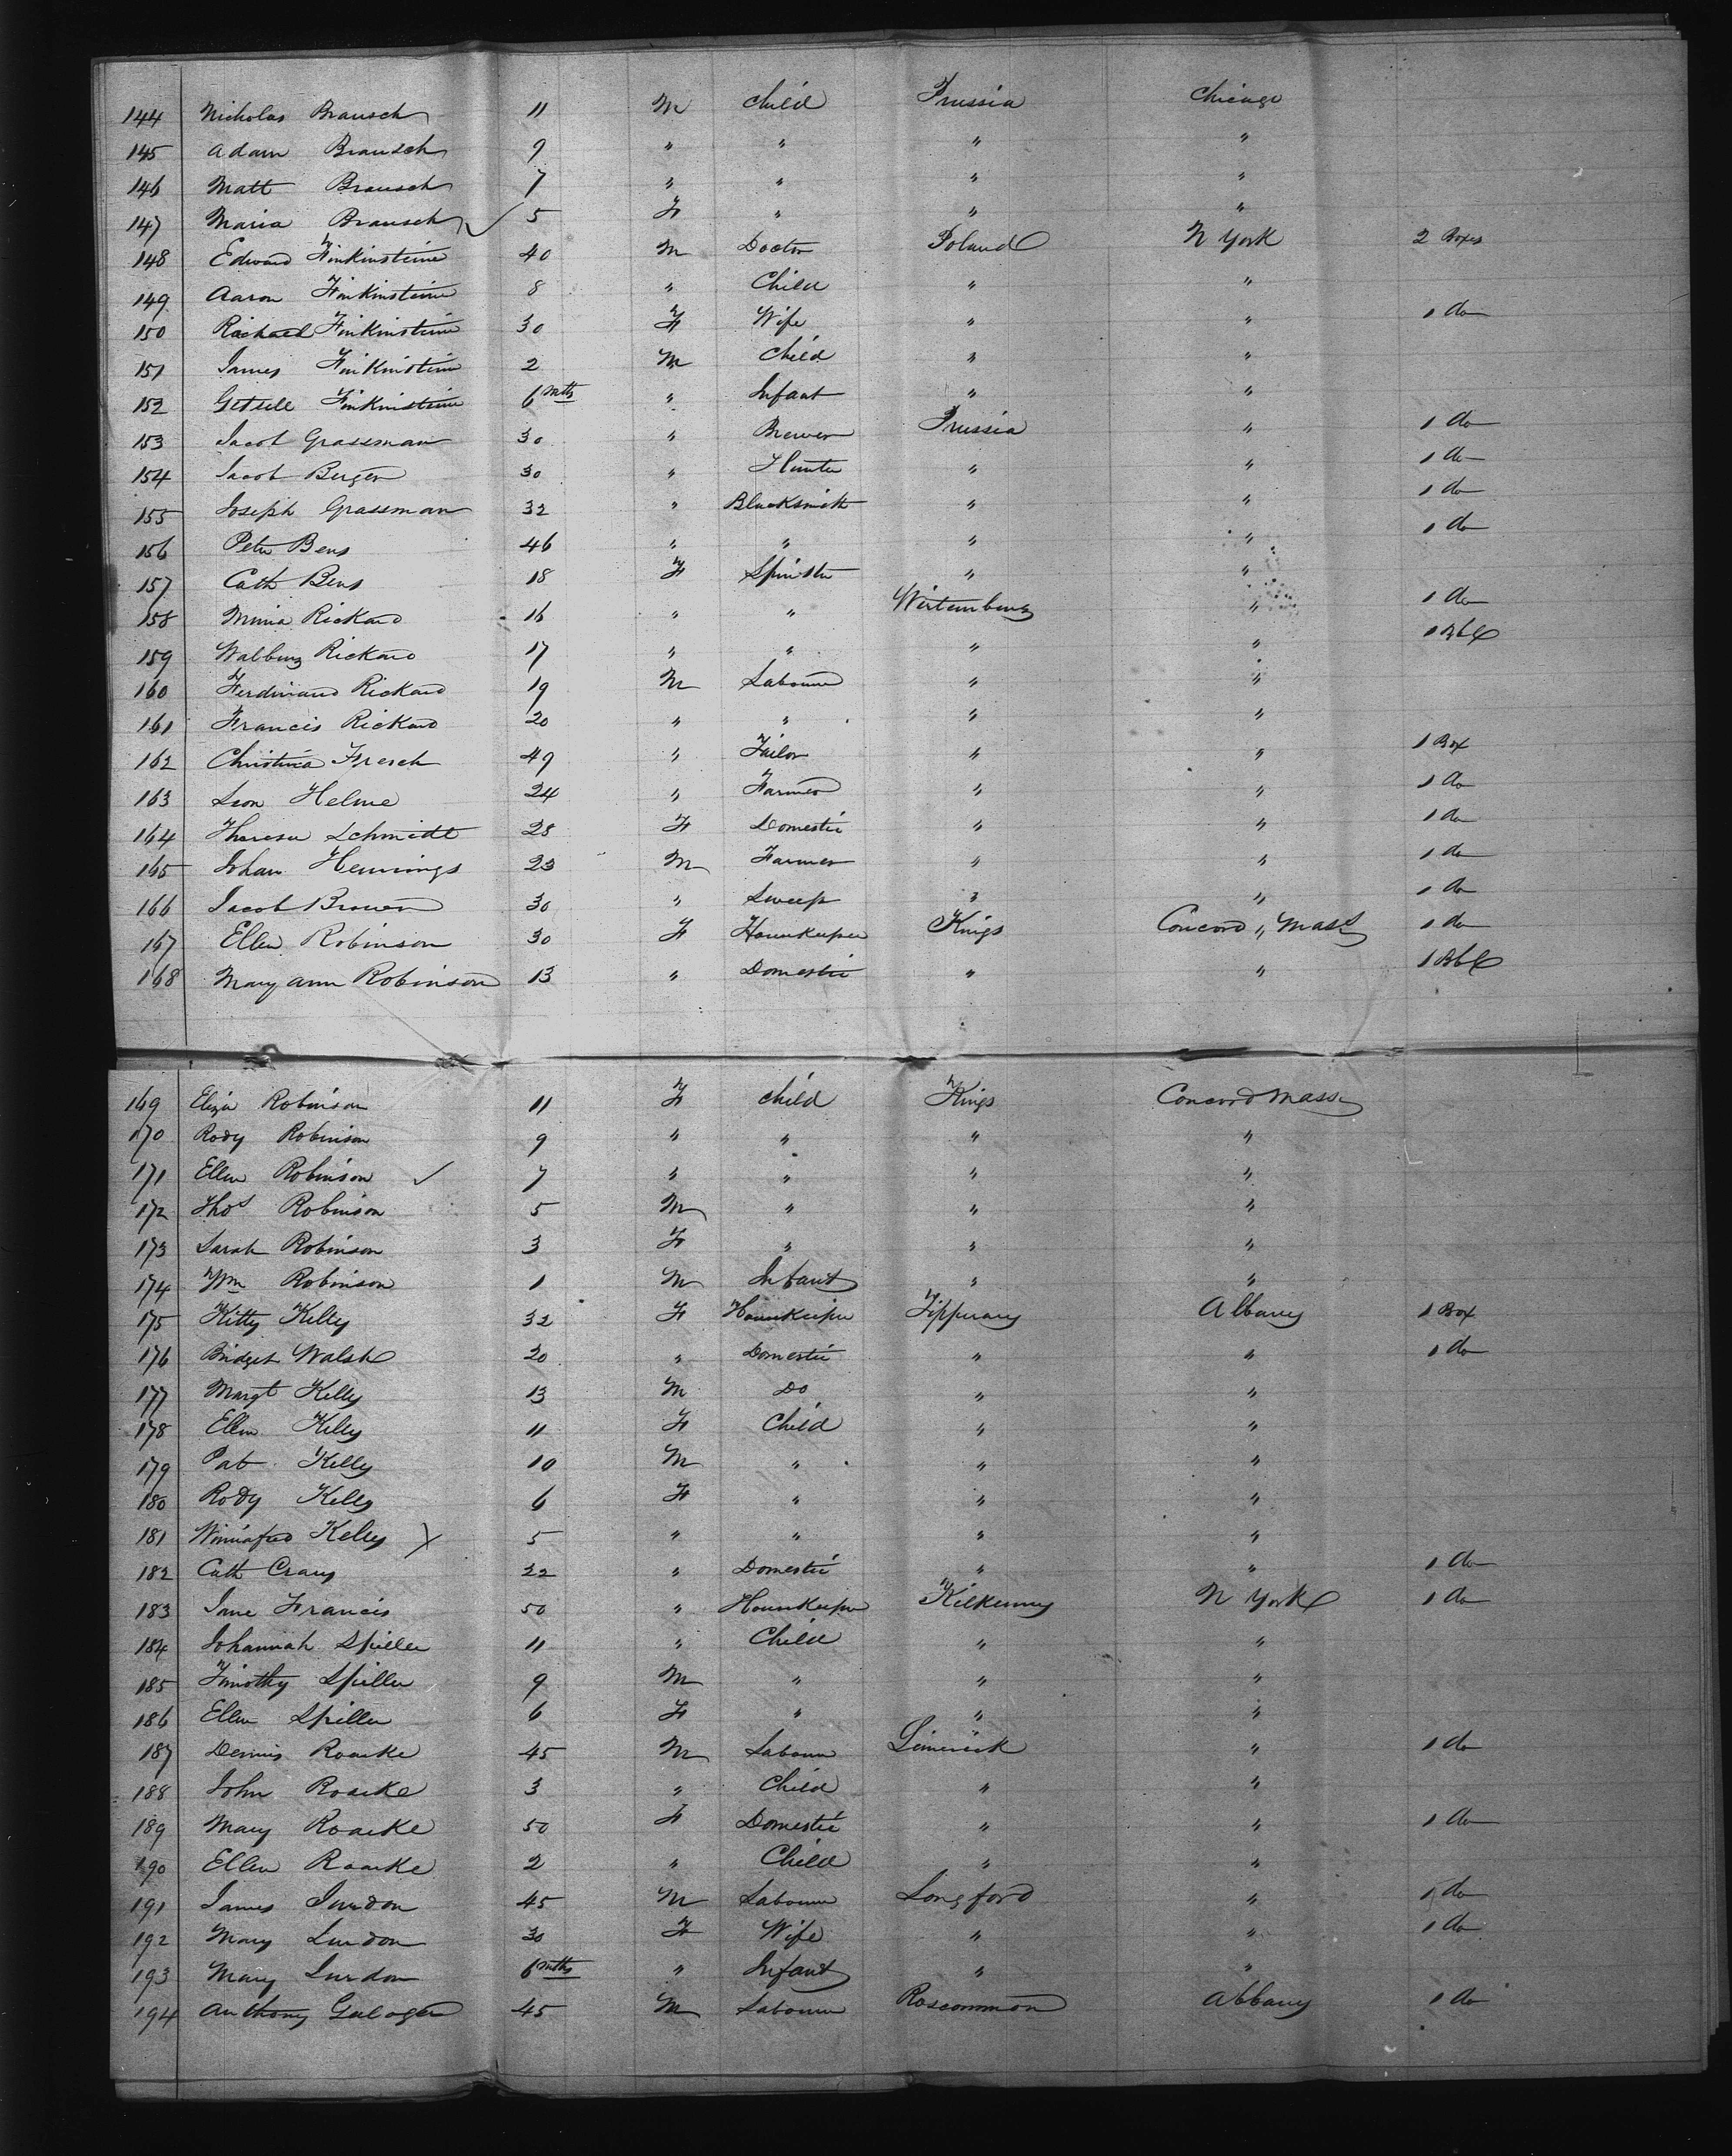 144 Nicholas Brausch 11 M Child Prussia Chicago
145 Adam Brausch 9 " " " "
146 Matt Brausch 7 " " " "
147 Maria Brausch ✓ 5 F " " "
148 Edward Finkinsteine 40 M Doctor Poland N York 2 Boxes
149 Aaron Finkinsteine 8 " Child " "
150 Rachael Finkinsteine 30 F Wife " " 1 do
151 James Finkinsteine 2 M Child " "
152 Finkinsteine 6 mths " Infant " "
153 Jacob Grassman 30 " Brewer Prussia " 1 do
154 Jacob Berger 30 " Hunter " " 1 do
155 Joseph Grassman 32 " Blacksmith " " 1 do
156 Peter Bens 46 " " " " 1 do
157 Cath Bens 18 F Spinster " "
158 Minia Rickard 16 " " Wirtemburg " 1 do
159 Walburg Rickard 17 " " " " 1 Bbl
160 Ferdinand Rickard 19 M Labourer " "
161 Francis Rickard 20 " " " "
162 Christina Fresch 49 " Tailor " " 1 Box
163 Leon Helme 24 " Farmer " " 1 do
164 Theresa Schmidt 28 F Domestic " " 1 do
165 Johan Hennings 23 M Farmer " " 1 do
166 Jacob Brower 30 " Sweep " " 1 do
167 Ellen Robinson 30 F Housekeeper Kings Concord " Mass 1 do
168 Mary ann Robinson 13 " Domestic " " 1 Bbl
169 Eliza Robinson 11 F child Kings Concord Mass
170 Rody Robinson 9 " " " "
171 Ellen Robinson ✓ 7 " " " "
172 Thos Robinson 5 M " " "
173 Sarah Robinson 3 F " " "
174 Wm Robinson 1 M Infant " "
175 Kitty Kelly 32 F Housekeeper Tipperary Albany 1 Box
176 Bridget Walsh 20 " Domestic " " 1 do
177 Margt Kelly 13 M Do " "
178 Ellen Kelly 11 F Child " "
179 Pat Kelly 10 M " " "
180 Rody Kelly 6 F " " "
181 Winnafred Kelly X 5 " " " "
182 Cath 22 " Domestic " " 1 do
183 Jane Francis 50 " Housekeeper Kilkenny N York 1 do
184 Johannah Spiller 11 " Child " "
185 Timothy Spiller 9 M " " "
186 Ellen Spiller 6 F " " "
187 Dennis Roarke 45 M Labourer Limerick " 1 do
188 John Roarke 3 " Child " "
189 Mary Roarke 50 F Domestic " " 1 do
190 Ellen Roarke 2 " Child " "
191 James Surdon 45 M Labourer Longford " 1 do
192 Mary Surdon 30 F Wife " " 1 do
193 Mary Surdon 6 mths " Infant " "
194 Anthony Galoger 45 M Labourer Roscommon Albany 1 do